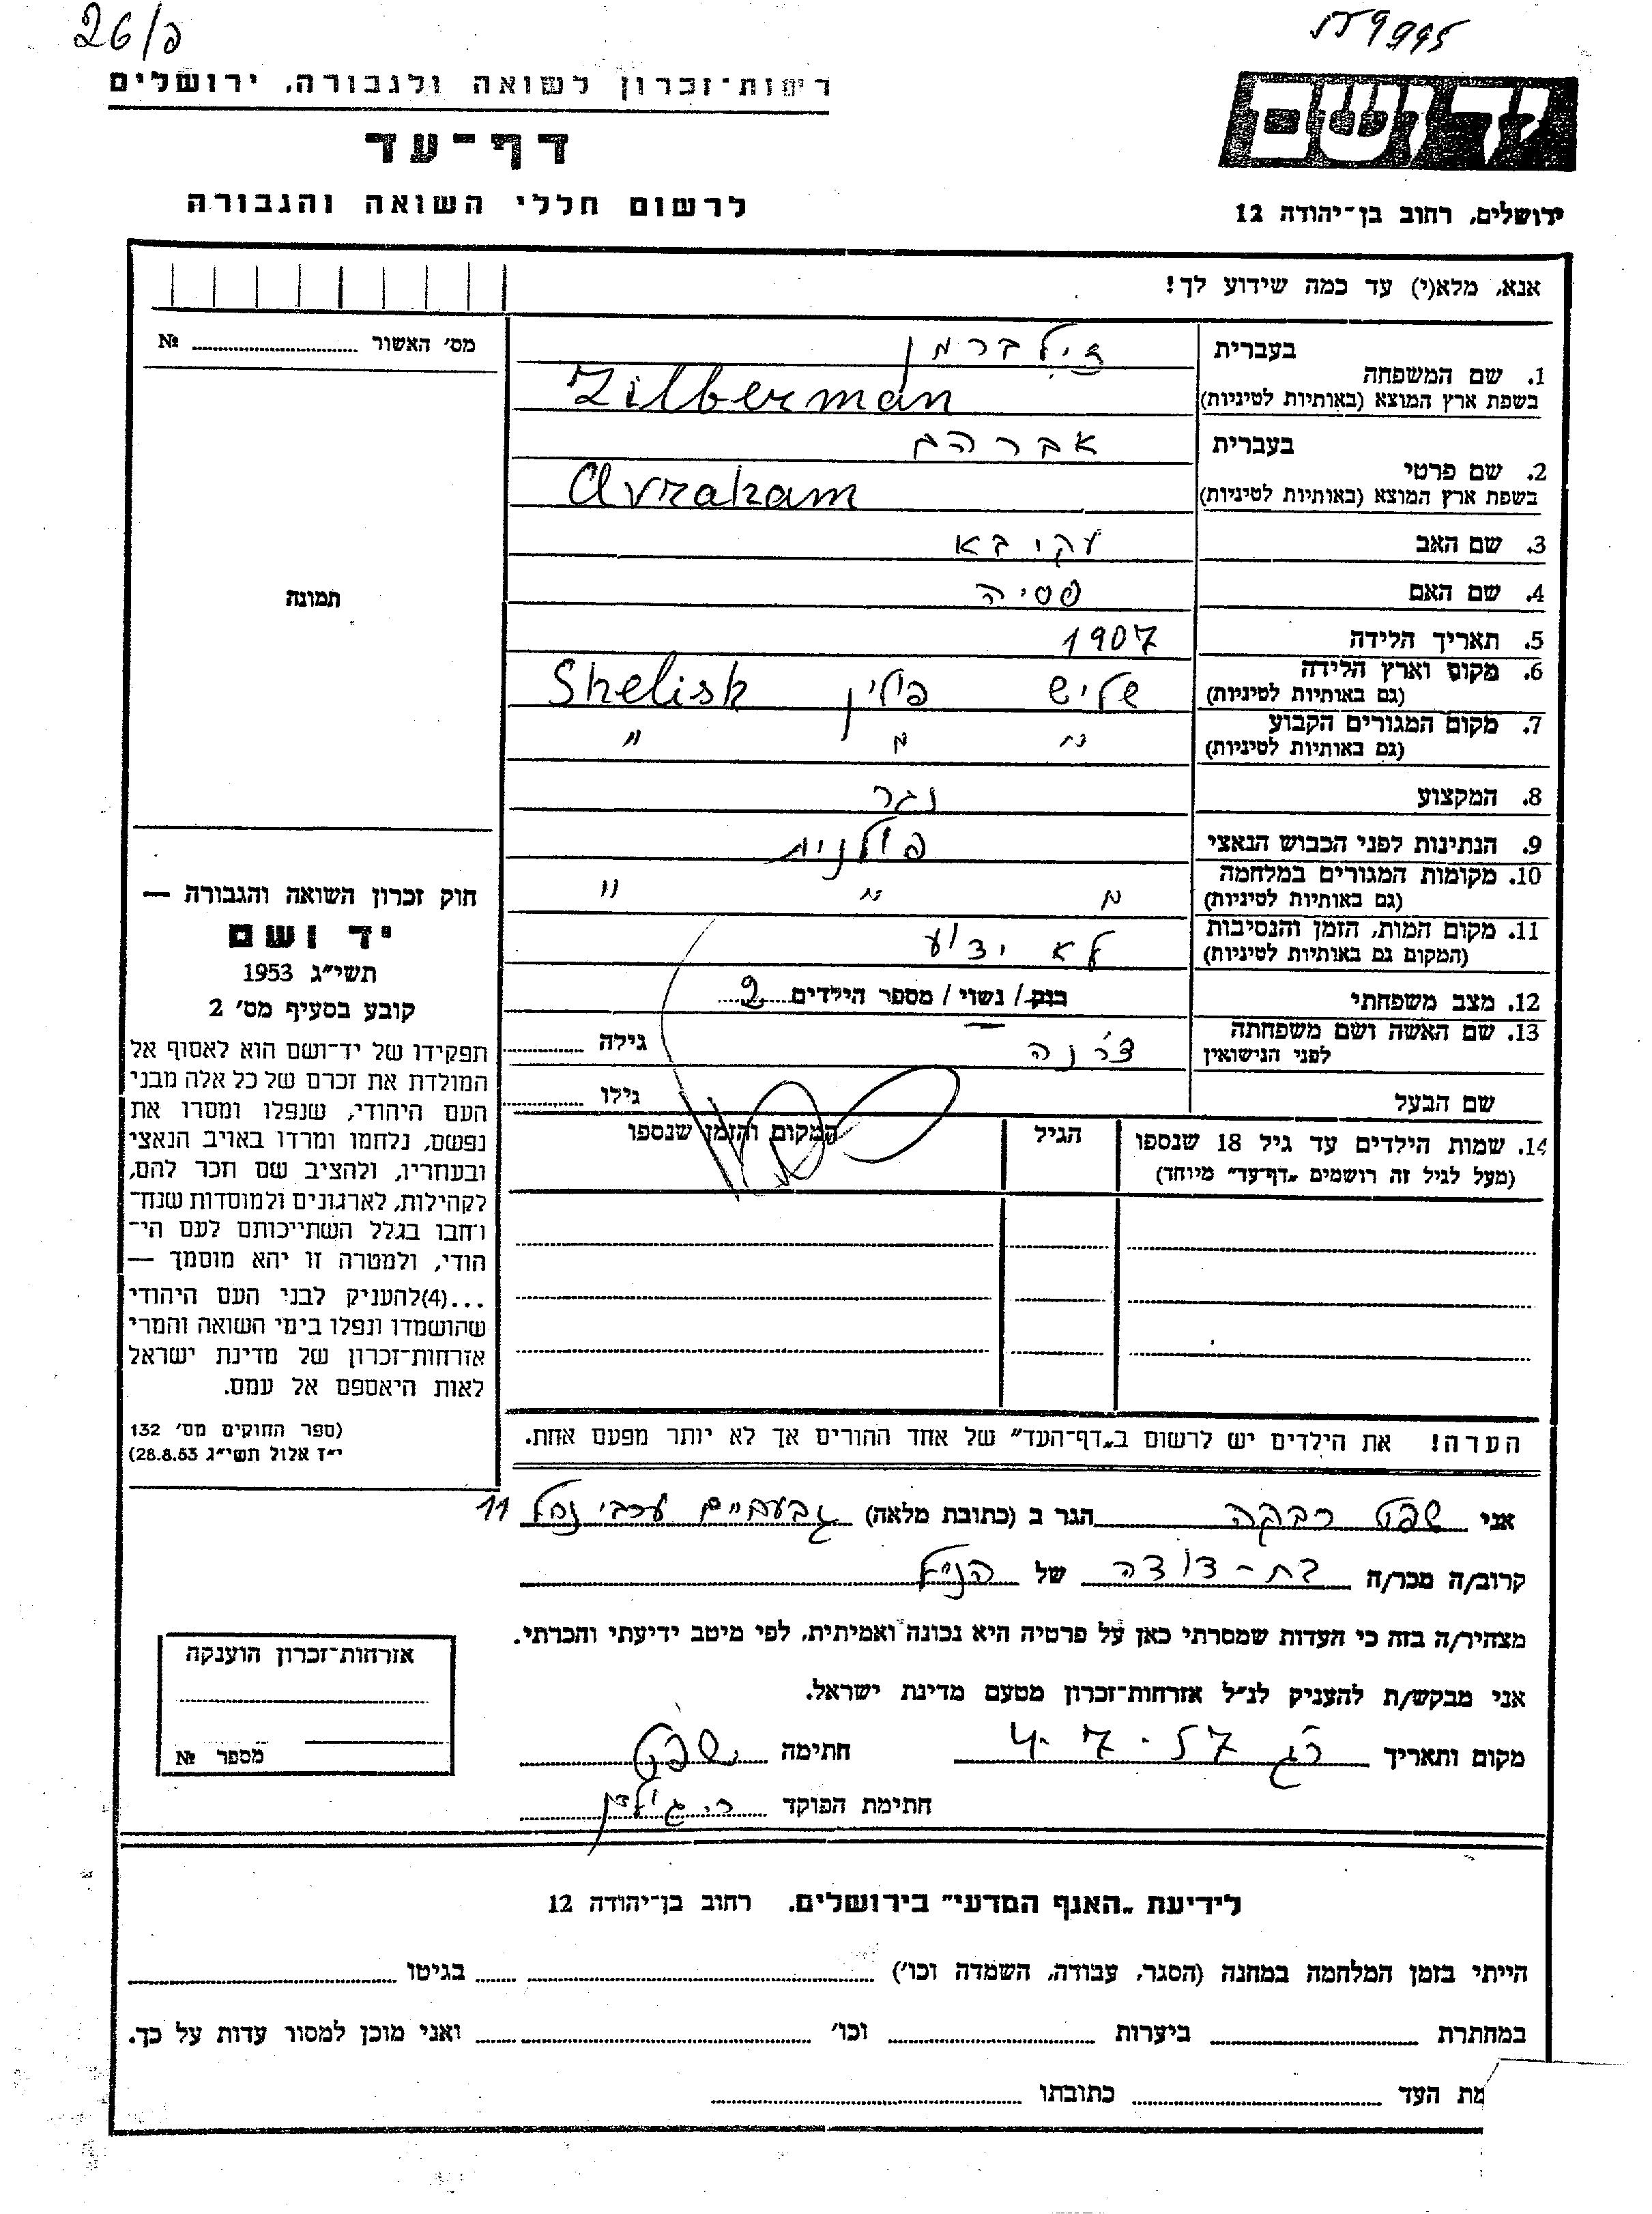 26/פ
רשות־זכרון לשואה ולגבורה, ירושלים
דף־עד
לרשום חללי השואה והגבורה
יד ושם
ירושלים, רחוב בן־יהודה 12
אנא, מלא(י) עד כמה שידוע לך!
מס׳ האשור №
1. שם המשפחה
בעברית זילברמן
בשפת ארץ המוצא (באותיות לטיניות) Zilberman
2. שם פרטי
בעברית אברהם
בשפת ארץ המוצא (באותיות לטיניות) Avraham
3. שם האב עקיבא
4. שם האם פסיה
5. תאריך הלידה 1907
6. מקום וארץ הלידה שליש פולין Shelisk
(גם באותיות לטיניות)
7. מקום המגורים הקבוע " " "
(גם באותיות לטיניות)
8. המקצוע נגר
9. הנתינות לפני הכבוש הנאצי פולנית
10. מקומות המגורים במלחמה " " "
(גם באותיות לטיניות)
11. מקום המות, הזמן והנסיבות לא ידוע
(המקום גם באותיות לטיניות)
12. מצב משפחתי רווק / נשוי / מספר הילדים 2
13. שם האשה ושם משפחתה
לפני הנישואין גילה
שם הבעל גילו
14. שמות הילדים עד גיל 18 שנספו הגיל המקום והזמן שנספו
(מעל לגיל זה רושמים „דף־עד" מיוחד)
הערה! את הילדים יש לרשום ב„דף־העד" של אחד ההורים אך לא יותר מפעם אחת.
תמונה
חוק זכרון השואה והגבורה —
יד ושם
תשי״ג 1953
קובע בסעיף מס׳ 2
תפקידו של יד־ושם הוא לאסוף אל
המולדת את זכרם של כל אלה מבני
העם היהודי, שנפלו ומסרו את
נפשם, נלחמו ומרדו באויב הנאצי
ובעוזריו, ולהציב שם וזכר להם,
לקהילות, לארגונים ולמוסדות שנח־
רבו בגלל השתייכותם לעם הי־
הודי, ולמטרה זו יהא מוסמך —
...(4)להעניק לבני העם היהודי
שהושמדו ונפלו בימי השואה והמרי
אזרחות־זכרון של מדינת ישראל
לאות היאספם אל עמם.
(ספר החוקים מס׳ 132
י״ז אלול תשי״ג 28.8.53)
אני שפט רבקה הגר ב (כתובת מלאה) גבעתיים ערבי נחל 11
קרוב/ה מכר/ה בת-דודה של הנ״ל
מצהיר/ה בזה כי העדות שמסרתי כאן על פרטיה היא נכונה ואמיתית, לפי מיטב ידיעתי והכרתי.
אני מבקש/ת להעניק לנ״ל אזרחות־זכרון מטעם מדינת ישראל.
מקום ותאריך רג 4.7.57 חתימה שפט
חתימת הפוקד
אזרחות־זכרון הוענקה
מספר №
לידיעת „האגף המדעי" בירושלים. רחוב בן־יהודה 12
הייתי בזמן המלחמה במחנה (הסגר, עבודה, השמדה וכו׳) בגיטו
במחתרת ביערות וכו׳ ואני מוכן למסור עדות על כך.
מת העד כתובתו